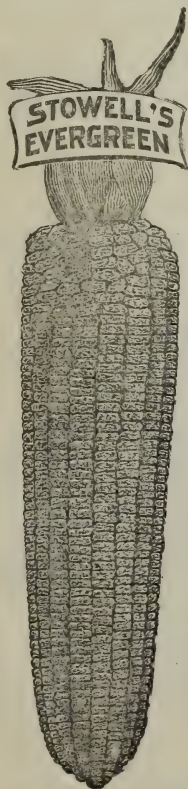 STOWELL'S
EVERGREEN